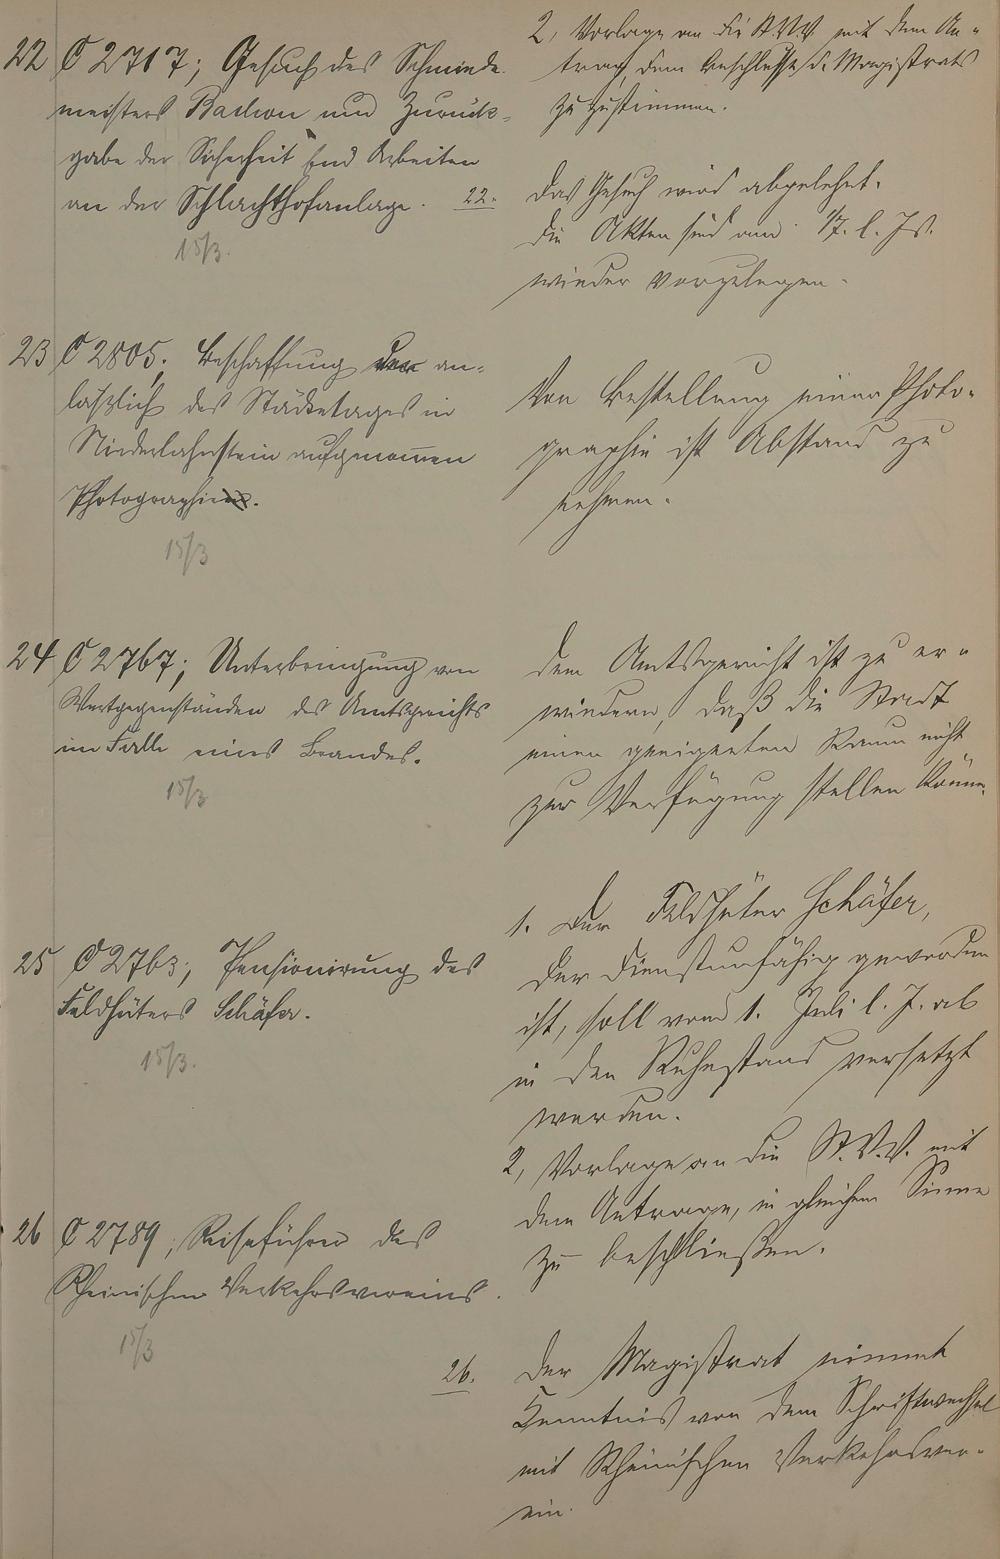 2, Vorlage an die St.V.V. mit dem An-
trag, dem Beschlusse d. Magistrats
zuzustimmen.
22 C 2717; Gesuch des Schmiede-
meisters und Zurück-
gabe der Sicherheit Arbeiten
an der Schlachthofanlage.
15/3.
22. Das Gesuch wird abgelehnt.
Die Akten sind am 1/7. l. Js.
wieder vorzulegen.
23 C 2805; Beschaffung der an-
läßlich des Städtetages in
Niederlahnstein aufgenommenen
Photographien.
15/3
Von Bestellung einer Photo-
graphie ist Abstand zu
nehmen.
24 C 2767; Unterbringung von
Wertgegenständen des Amtsgerichts
im Falle eines Brandes.
15/3
Dem Amtsgericht ist zu er-
widern, daß die Stadt
einen geeigneten Raum nicht
zur Verfügung stellen könne.
25 C 2763; Pensionierung des
Feldhüters Schäfer.
15/3.
1. Der Feldhüter Schäfer,
der dienstunfähig geworden
ist, soll vom 1. Juli l. J. ab
in den Ruhestand versetzt
werden.
2, Vorlage an die St.V.V. mit
dem Antrage, in gleichem Sinne
zu beschließen.
26 C 2789; Reiseführer des
Rheinischen Verkehrsvereins.
15/3
26. Der Magistrat nimmt
Kenntnis von dem Schriftwechsel
mit Rheinischen Verkehrsver-
ein.